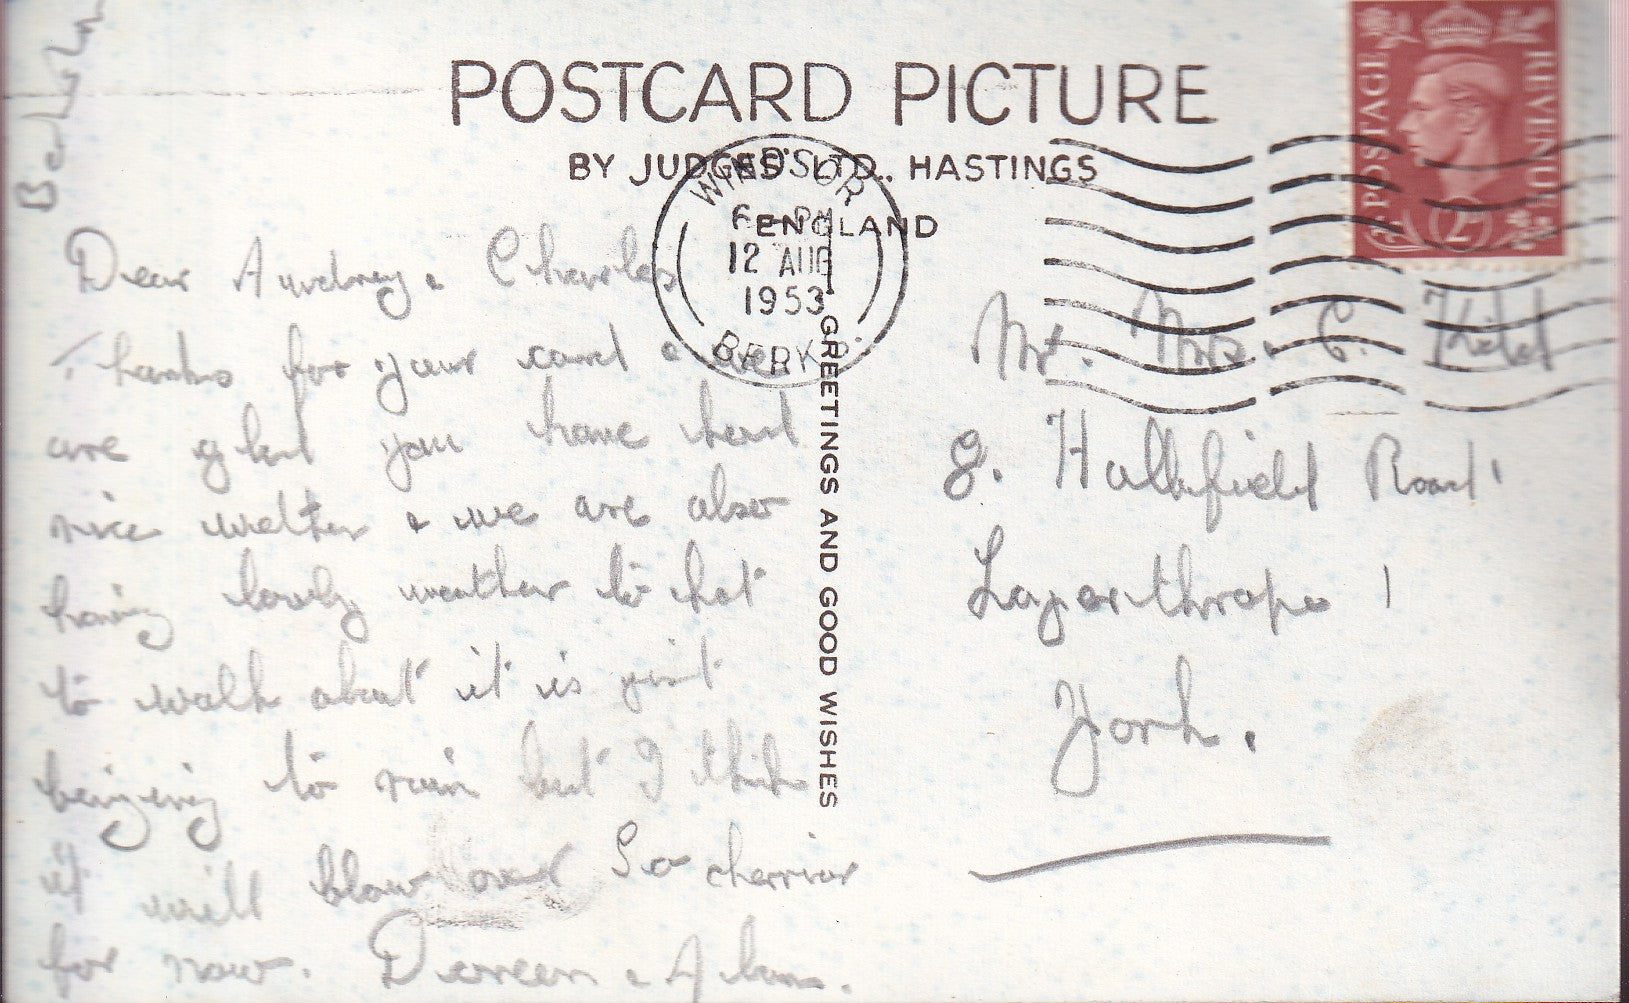 POSTCARD PICTURE
BY JUDGES' LTD., HASTINGS
ENGLAND
WINDSOR
PM
12 AUG
1953
BERKS
POSTAGE
REVENUE
2
GREETINGS AND GOOD WISHES
Dear Audrey & Charles
Thanks for your card & we
are glad you have had
nice weather & we are also
having lovely weather to hot
to walk about it is just
to rain but I think
it will blow over So cherrior
for now. Doreen & Alan.
Mr. Mrs. C. Kidd
8. Hallfield Road
Layerthrope
York.